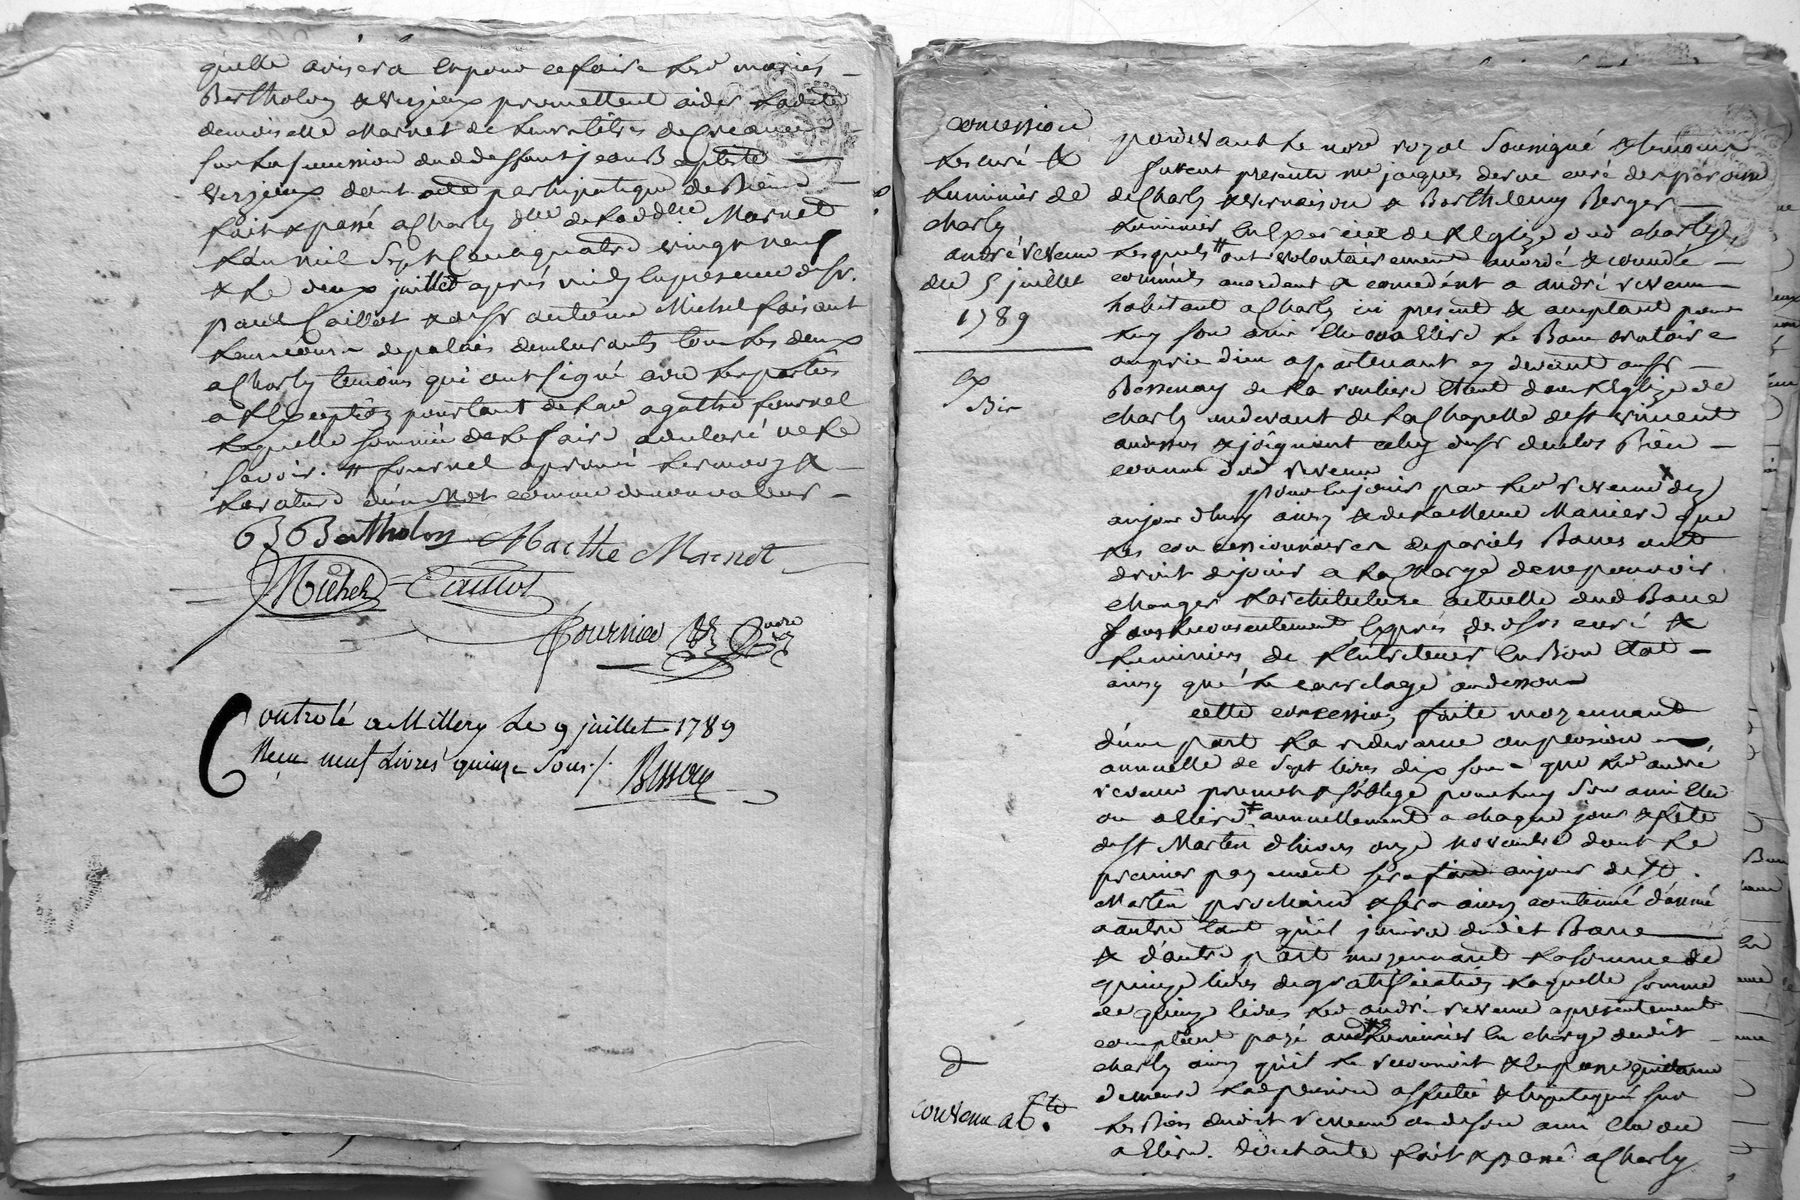 qu'elle avisera et pour ce faire les mariés
Bertholon & verzieux promettent aider ladite
demoiselle Marnet de leurs titres de Creance
sur la succession dud deffunt jean Baptiste
verzieux dont acte
fait & passé a Charly de lad dlle Marnet
l'an mil Sept Cent quatre vingt neuf
& le deux juillet après midy en presence de sr.
paul Caillot & de sr antoine Michel faisant
leur cours de palais demeurants tous les deux
a Charly temoins qui ont signé avec les parties
a l'exception pourtant de lad agathe fournel
laquelle sommée de le faire a declaré ne le
savoir. # fournel aprouvé les mots &
la rature d'un mot comme de non valeur
B Bertholon Marthe Marnot
Michel Caillot
Fournier nore
Controlé a Millery le 9 juillet 1789
Reçu neuf Livres quinze Sous /. Besson
concession
les curé &
luminier de
charly
andré
du 5 juillet
1789
Ex
Bir
d
convenu a 6
pardevant le nore royal Soussigné & temoins
furent presents mre jacques curé des paroisses
de Charly & vernaison & Barthelemy Berger
luminier en Exercice de l'Eglize dud charly
lesquels # ont volontairement accordé & concedé
comme accordent & concedent a andré
habitant a Charly ici present & acceptant pour
luy son amy Elu ou a Elire le Banc oratoire
ou prie dieu apartenant cy devant au sr
Bessenay de la rouliere etant dans l'Eglize de
charly audevant de la Chapelle de st vincent
audessus & joignant celuy du sr duclos Bien
connu dud
pour en jouir par led dez
aujourdhuy ainsy & de la Meme Maniere que
les concessionnaires de pareils Bancs ont
droit de jouir a la charge de ne pouvoir
changer l'architecture actuelle dud Banc
sans le consentement Exprès desd srs curé &
luminiers de l'entretenir en Bon etat
ainsy que le carrelage audessous
cette concession faite moyennant
d'une part la redevance ou pension
annuelle de Sept livres dix sous que led andré
promet & s'oblige pour luy Son ami Elu
ou a Elire # annuellement a chaque jour & fete
de st Martin d'hiver onze novembre dont le
premier payement sera fait au jour de st.
Martin prochain & sera ainsy continué d'année
a autre tant qu'il jouira dudit Banc
& d'autre part moyennant la somme de
quinze livres de gratification laquelle somme
de quinze livres led andré a presentement
comptant payé aud luminier en charge dudit
charly ainsy qu'il le reconnoit & le passe quittance
demeure lad pension affectée & hipotequée sur
les biens dudit ou de son ami elu ou
a Elire. dont acte fait & passé a Charly